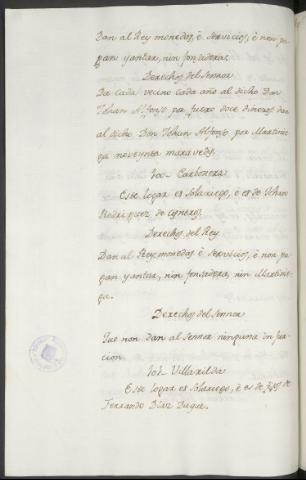 Dan al Rey monedas, è servicios, è non pa
gan yantar, nin fonsadera.
Derechos del Sennor
Da cada vecino cada año al dicho Dan
Iohan Alfonso por fuero doce dineros dan
al dicho Don Iohan Alfonso por Martinie
ga noventa maravedis.
Carbonera
Este logar es solariego, è es de Iohan
Rodriguez de Cisneros.
Derechos del Rey
Dan al Rey monedas è servicios, è non pa
gan yantar, nin fonsadera, nin Martinie
ga.
Derechos del Sennor
Que non dan al Sennor ninguna in fur
cion
Villarilda
Este logar es solariego, è es de fijos de
Ferrando Diaz Duque.